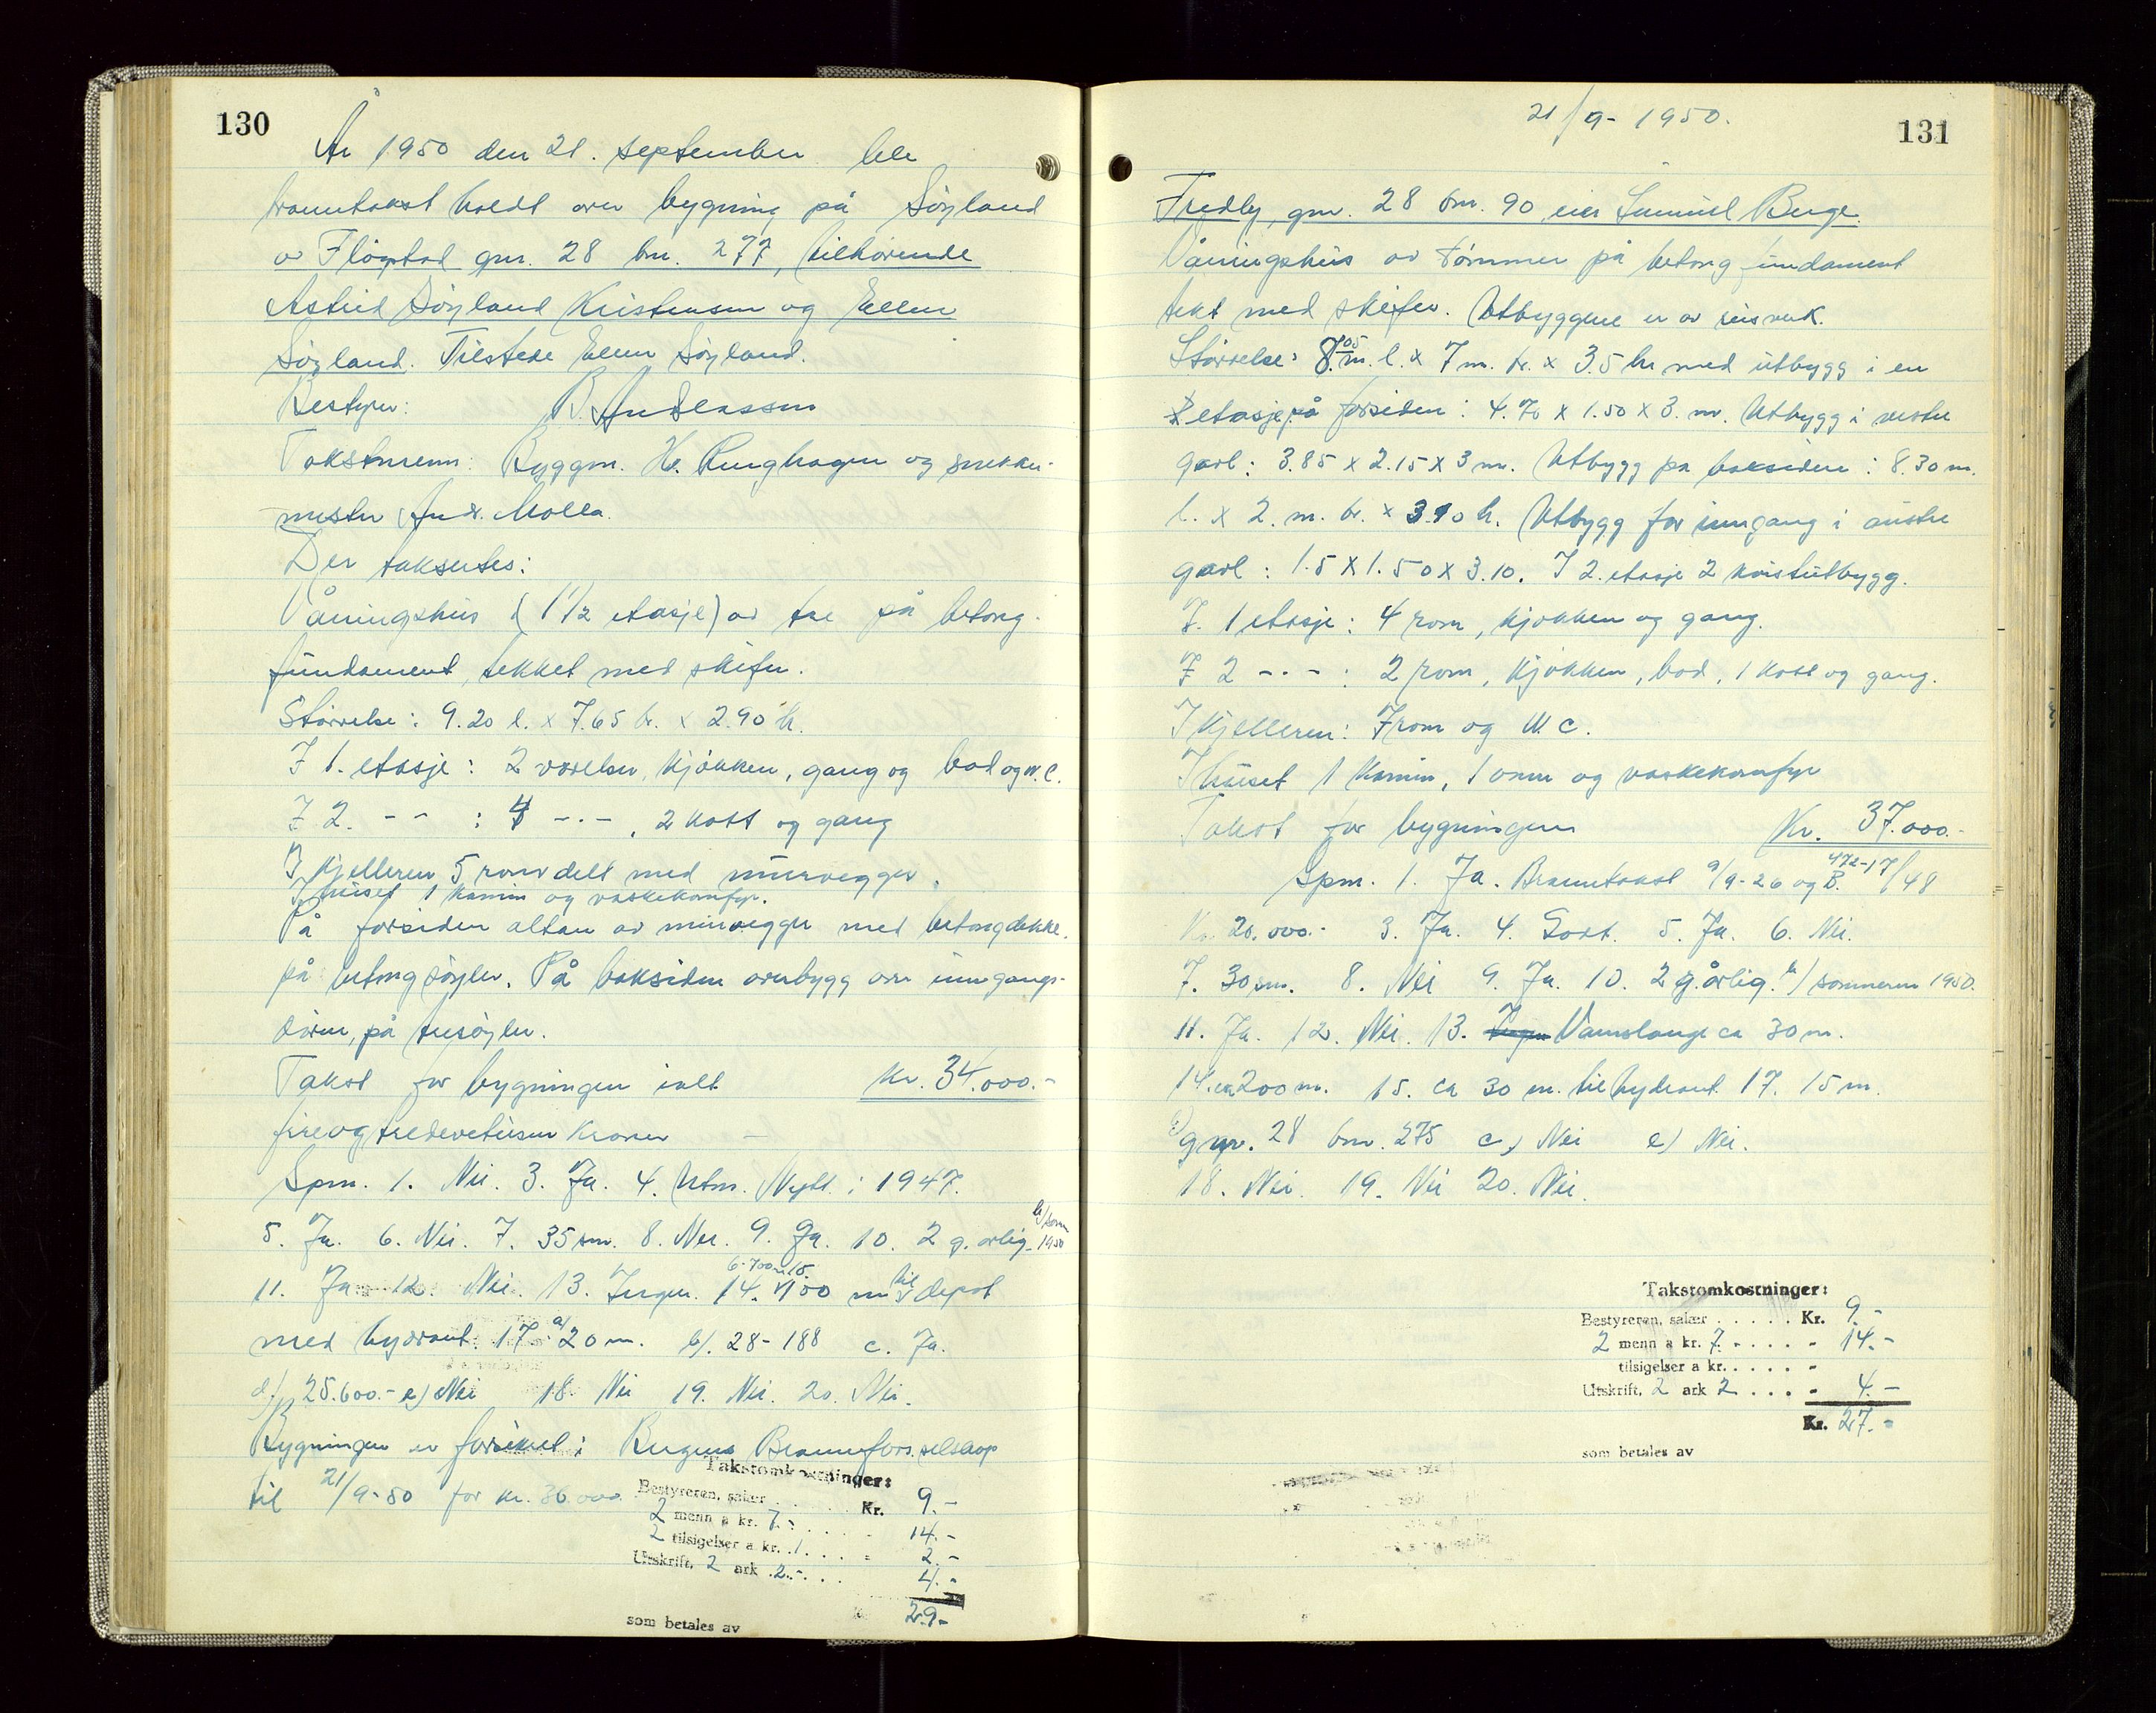 130
År 1950 den 21. september ble
branntakst holdt over bygning på Söyland
av Flögstad gnr. 28 bnr. 277, tilhörende
Astrid Söyland Kristensen og Ellen
Söyland. Tilstede Ellen Söyland.
Bestyrer: B. Andreassen
Takstmenn: Byggm. H. Ringhagen og snekker-
mester Andr. Molla.
Der taksertes:
Våningshus (1 1/2 etasje) av tre på betong-
fundament, tekket med skifer.
Störrelse: 9.20 l. x 7.65 br. x 2.90 h.
I 1. etasje: 2 værelser, kjökken, gang og bad og w.c.
I 2. - - : 4 -.- , 2 kott og gang
I kjelleren 5 rom delt med murvegger.
I huset 1 kamin og vaskekomfyr.
På forsiden altan av murvegger med betongdekke
på betongsöyler. På baksiden overbygg over inngangs-
dören, på tresöyler.
Takst for bygningen ialt kr. 34.000.-
fireogtredevetusen kroner —
Spm. 1. Nei. 3. Ja. 4. Utm. Nytt i 1947.
5. Ja. 6. Nei. 7. 35 sm. 8. Nei. 9. Ja. 10. 2 g. årlig. b/ som 1950
11. Ja 12. Nei. 13. Ingen. 14. 6-700 m 15. 100 m til depot
med hydrant. 17. a/ 20 m. b/. 28-188 c. Ja.
d/ B 25.600.- e) Nei 18. Nei 19. Nei. 20. Nei.
Bygningen er forsikret i Bergens Brannfors. selskap
til 21/9-50 for kr. 36.000.
Takstomkostninger:
Bestyreren, salær . . . . . Kr. 9.-
2 menn a kr. 7.- . . . . - 14.-
2 tilsigelser a kr. 1 . . . - 2.-
Utskrift, 2 ark 2.- . . . 4.-
29.-
som betales av
21/9- 1950.
131
Fredly, gnr. 28 bnr. 90, eier Samuel Berge.
Våningshus av tömmer på betongfundament
tekt med skifer. Utbyggene er av reisverk.
Störrelse: 8.05 m. l. x 7 m. br. x 3.5 h med utbygg i en
etasje på forsiden: 4.70 x 1.50 x 3. m. Utbygg i vestre
gavl: 3.85 x 2.15 x 3 m. Utbygg på baksiden: 8.30 m.
l. x 2. m. br. x 3.10 h. Utbygg for inngang i austre
gavl: 1.5 x 1.50 x 3.10. I 2. etasje 2 kvistutbygg.
I. 1 etasje: 4 rom, kjökken og gang.
I 2 -.- : 2 rom, kjökken, bad, 1 kott og gang.
I kjelleren: 7 rom og W.C.
I huset 1 kamin, 1 ovn og vaskekomfyr
Takst for bygningen Kr. 37.000.-
Spm. 1. Ja. Branntakst 9/9-26 og B. 472-17/48
Kr. 20.000.- 3. Ja. 4. Godt. 5. Ja. 6. Nei.
7. 30 sm. 8. Nei 9. Ja. 10. 2 g. årlig. b/ sommeren 1950.
11. Ja. 12. Nei. 13. Vannslange ca 30 m.
14. ca 200 m. 15. ca 30 m. til hydrant. 17. 15 m.
gnr. 28 bnr. 275 c) Nei e) Nei.
18. Nei. 19. Nei 20. Nei.
Takstomkostninger:
Bestyreren, salær . . . . . Kr. 9.-
2 menn a kr. 7.- . . . . - 14.-
tilsigelser a kr. . . . . -
Utskrift, 2 ark 2 . . . . - 4.-
Kr. 27.-
som betales av